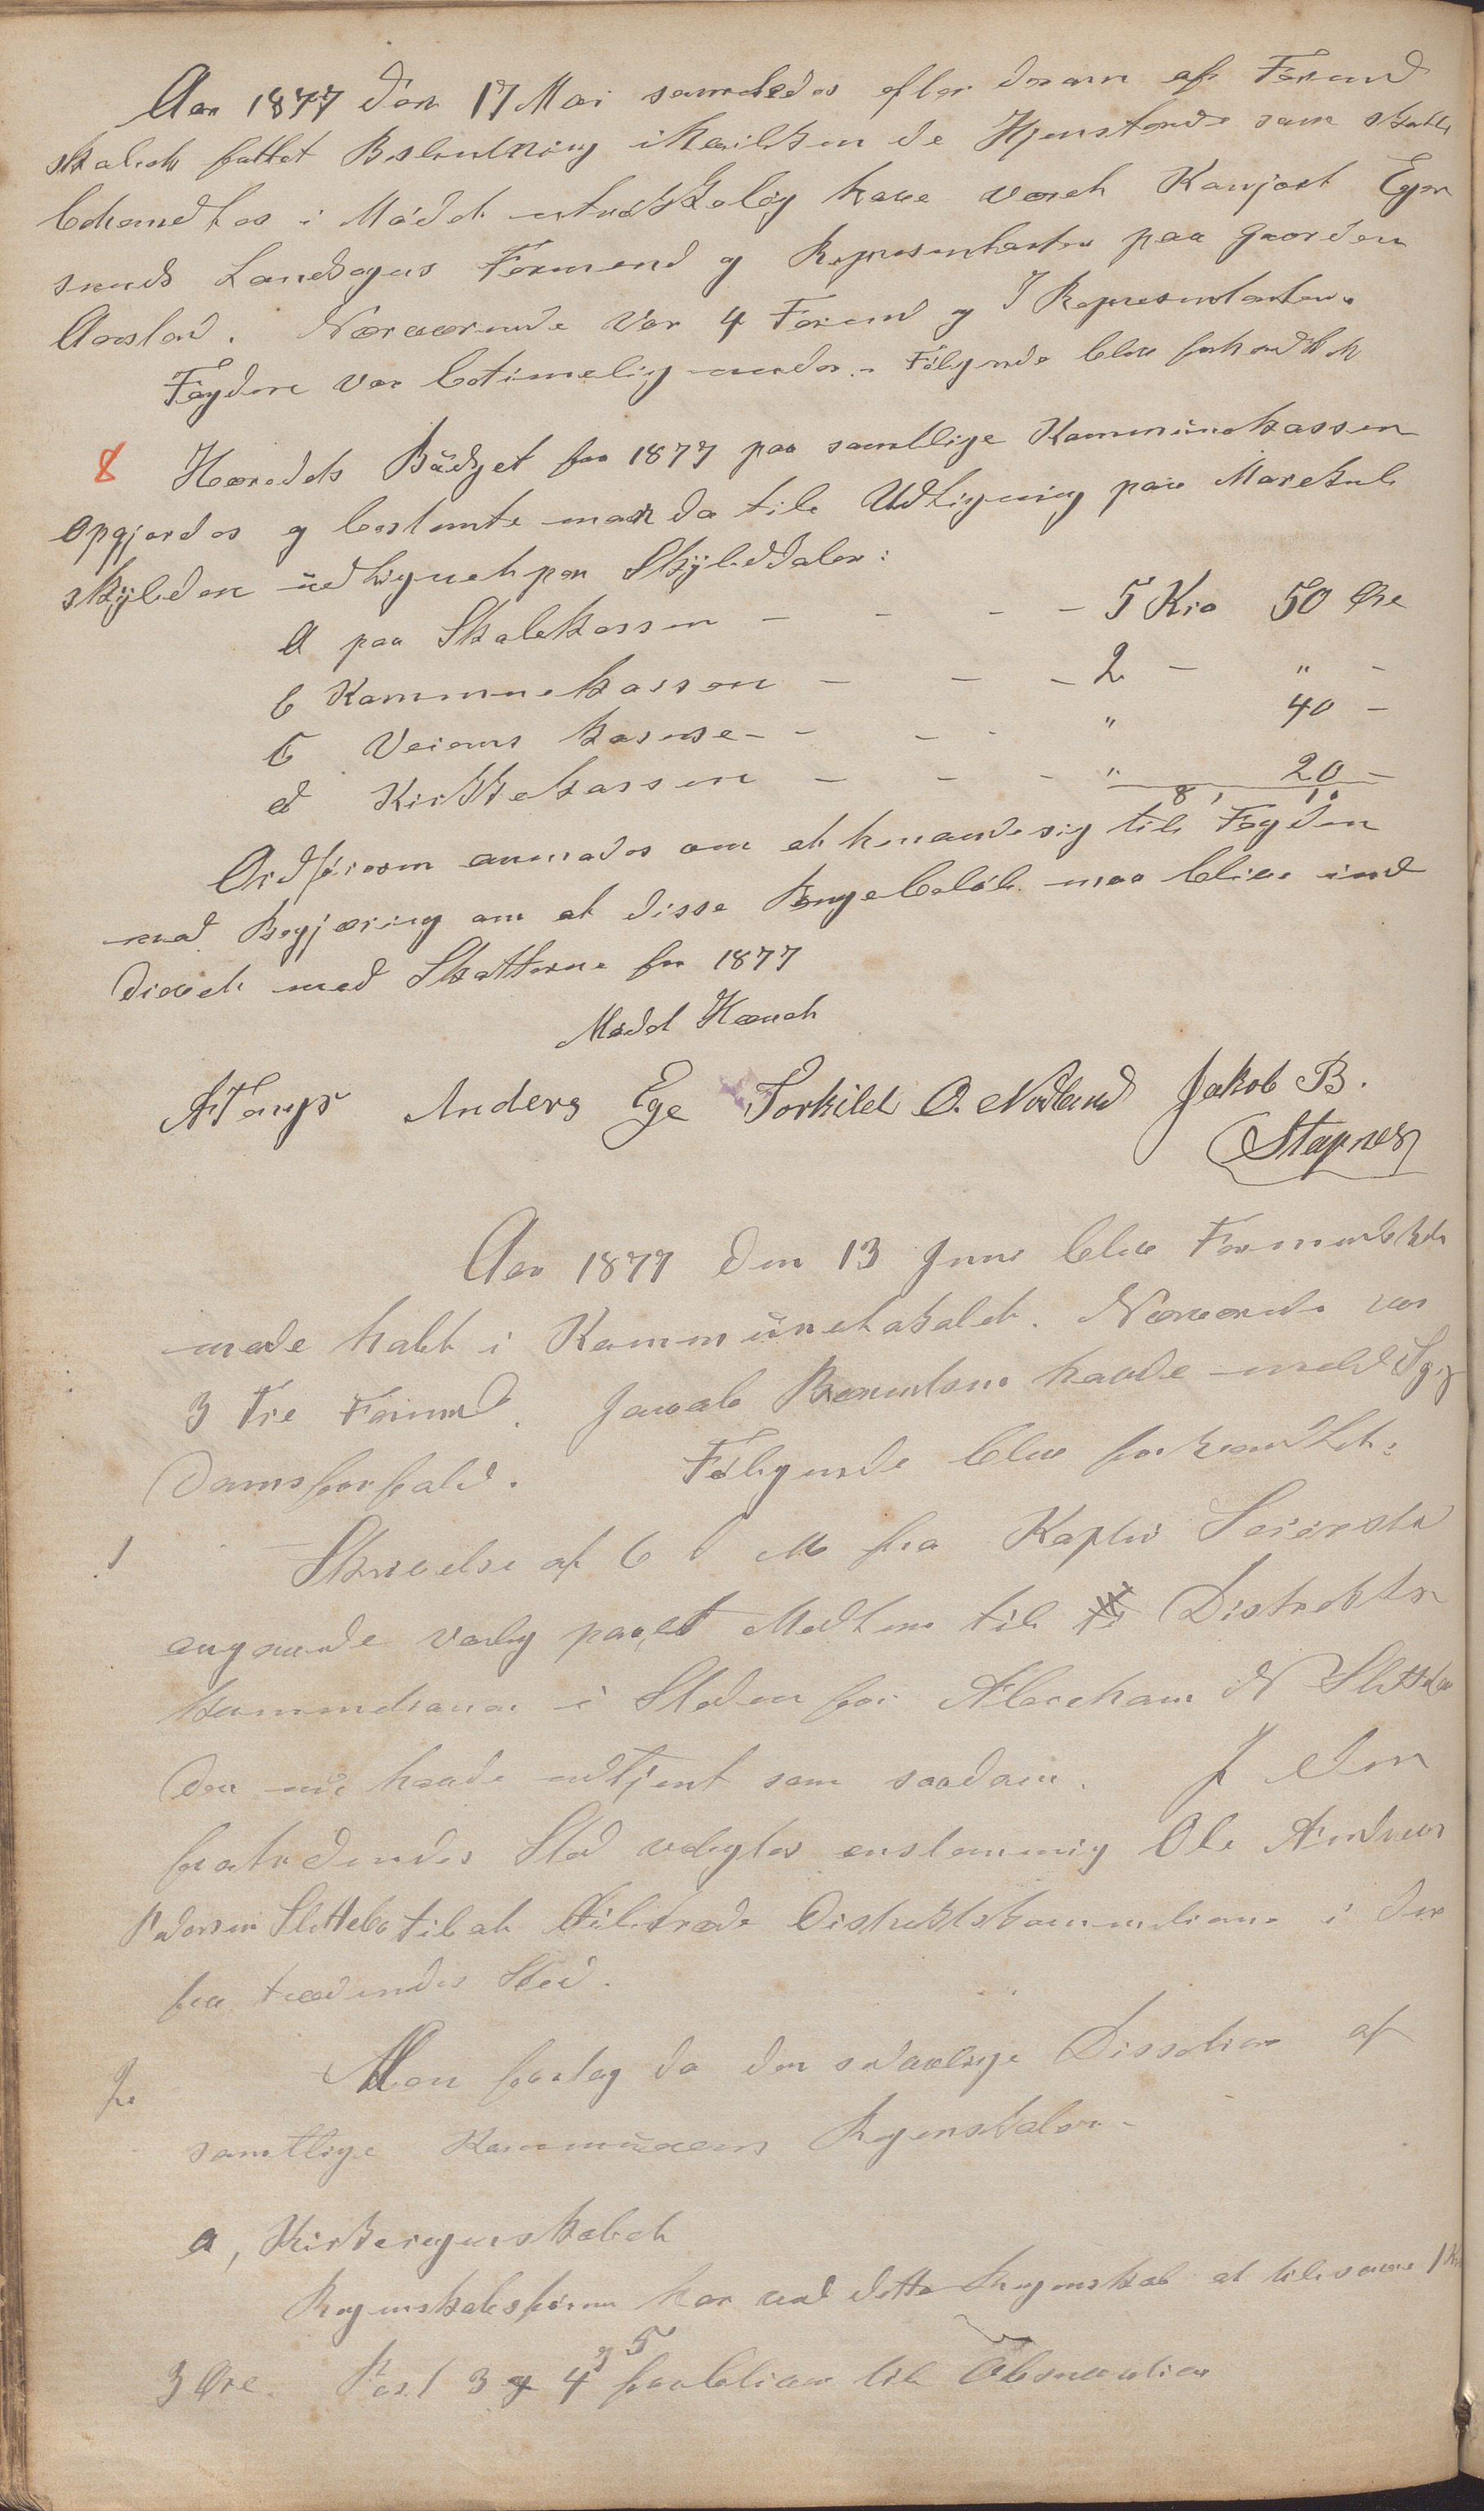 Aar 1877 den 17 Mai samledes efter deraar af Formand
skabet fattet Beslutning ihvilken de Gjenstande som skulle
behandles i Mødet udtrykkelig have været Kunjort Eger
sunds Landsogns Formend og Representanter paa Gaarden
Aarstad. Nærværende Var 4 Formend og 7 Representanter.
Fogden var betimelig under. Følgende blev forhandlet
8 Herredets Büdget for 1877 paa samtlige Kommünekassen
opgjordes og bestemte man da til Udligning paa Matrikul
skylden üdlignet per Skylddaler:
a paa Skolekassen - - - - 5 Kro 50 Øre
b Kommunekassen - - - 2 - " -
c Veiens kasse - - - - " 40 -
d Kirkekassen - - - " 20 -
8, 10
Ordføreren anmodes om at henvende sig til Fogden
med Begjæring om at disse Pengebeløb maa blive ind
drevet med Skatterne for 1877
Mødet Hævet
Anders Ege Torkild O. Nodland Jakob B.
Stapnes
Aar 1877 den 13 Juni blev Formandskabs
møde holdt i Kommünelokalet. Nærværende var
3 Tre Formend. Jacob Berentsen havde meldt Syg
domsforfald. Følgende blev forhandlet:
1 Skrivelse af 6 d M fra Kaptein Seierste
angaaende valg paa et Medlem til Distrikts
kommisionen i Steden for Abraham N Slettebø
der nü havde udtjent som saadan. I den
fratrædendes Sted valgtes enstemmig Ole Andreas
Pedersen Slettebø til at tiltræde Distriktskommisionen i den
fratrædendes Sted.
2. Man foretog da den sædvanlige Dissetion af
samtlige Kommünens Regnskaber.
a, Kirkeregnskabet
Regnskabsføreren har ved dette Regnskab at tilsvare 1 Kr
3 Øre. Post 3 og 4 og 5 forbliver til Observation